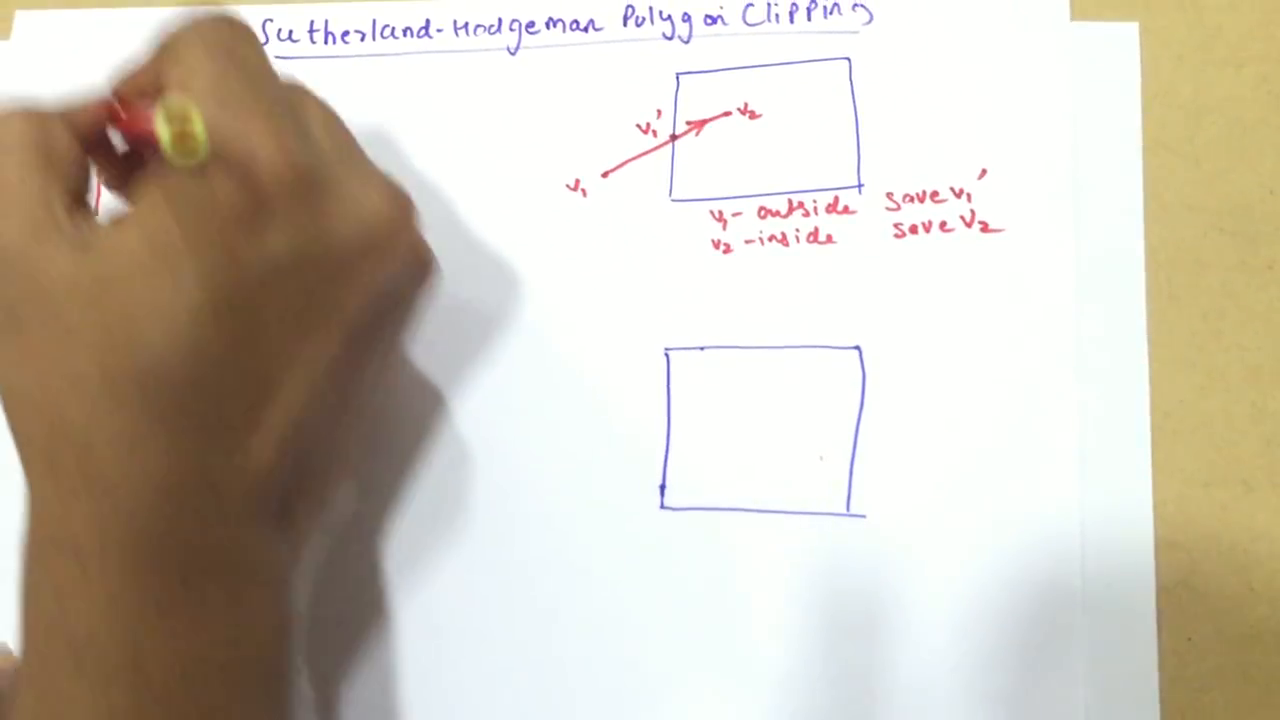 Sutherland-Hodgeman Polygon Clipping
v₁'
v₂
v₁
v₁- outside save v₁'
v₂ -inside save v₂